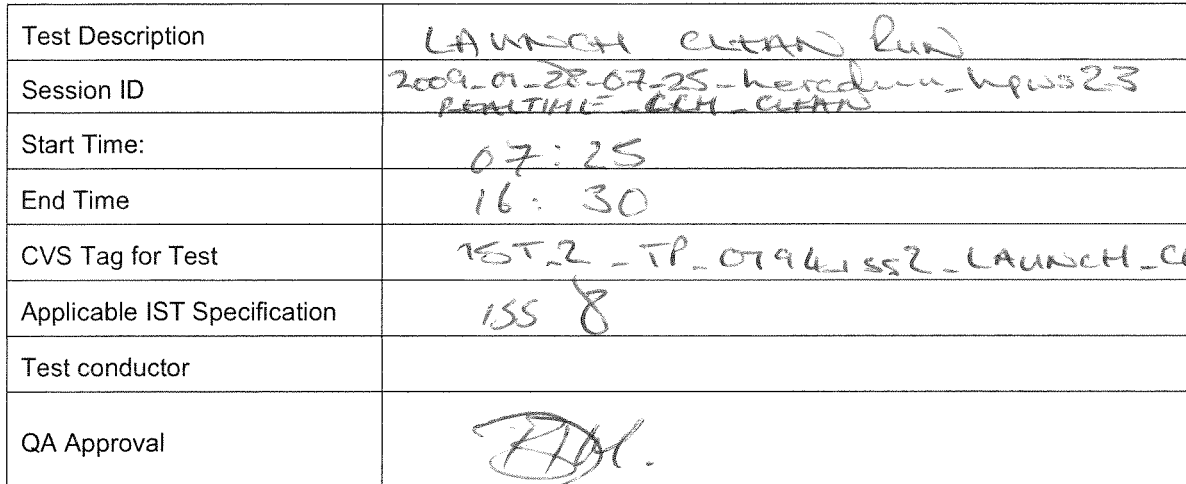 Test Description LAUNCH CLEAN RUN
Session ID 2009_01_28-07_25-
REALTIME_CCH_CLEAN
Start Time: 07:25
End Time 16:30
CVS Tag for Test IST_2_TP_0794_iss2_LAUNCH_CL
Applicable IST Specification ISS 8
Test conductor
QA Approval